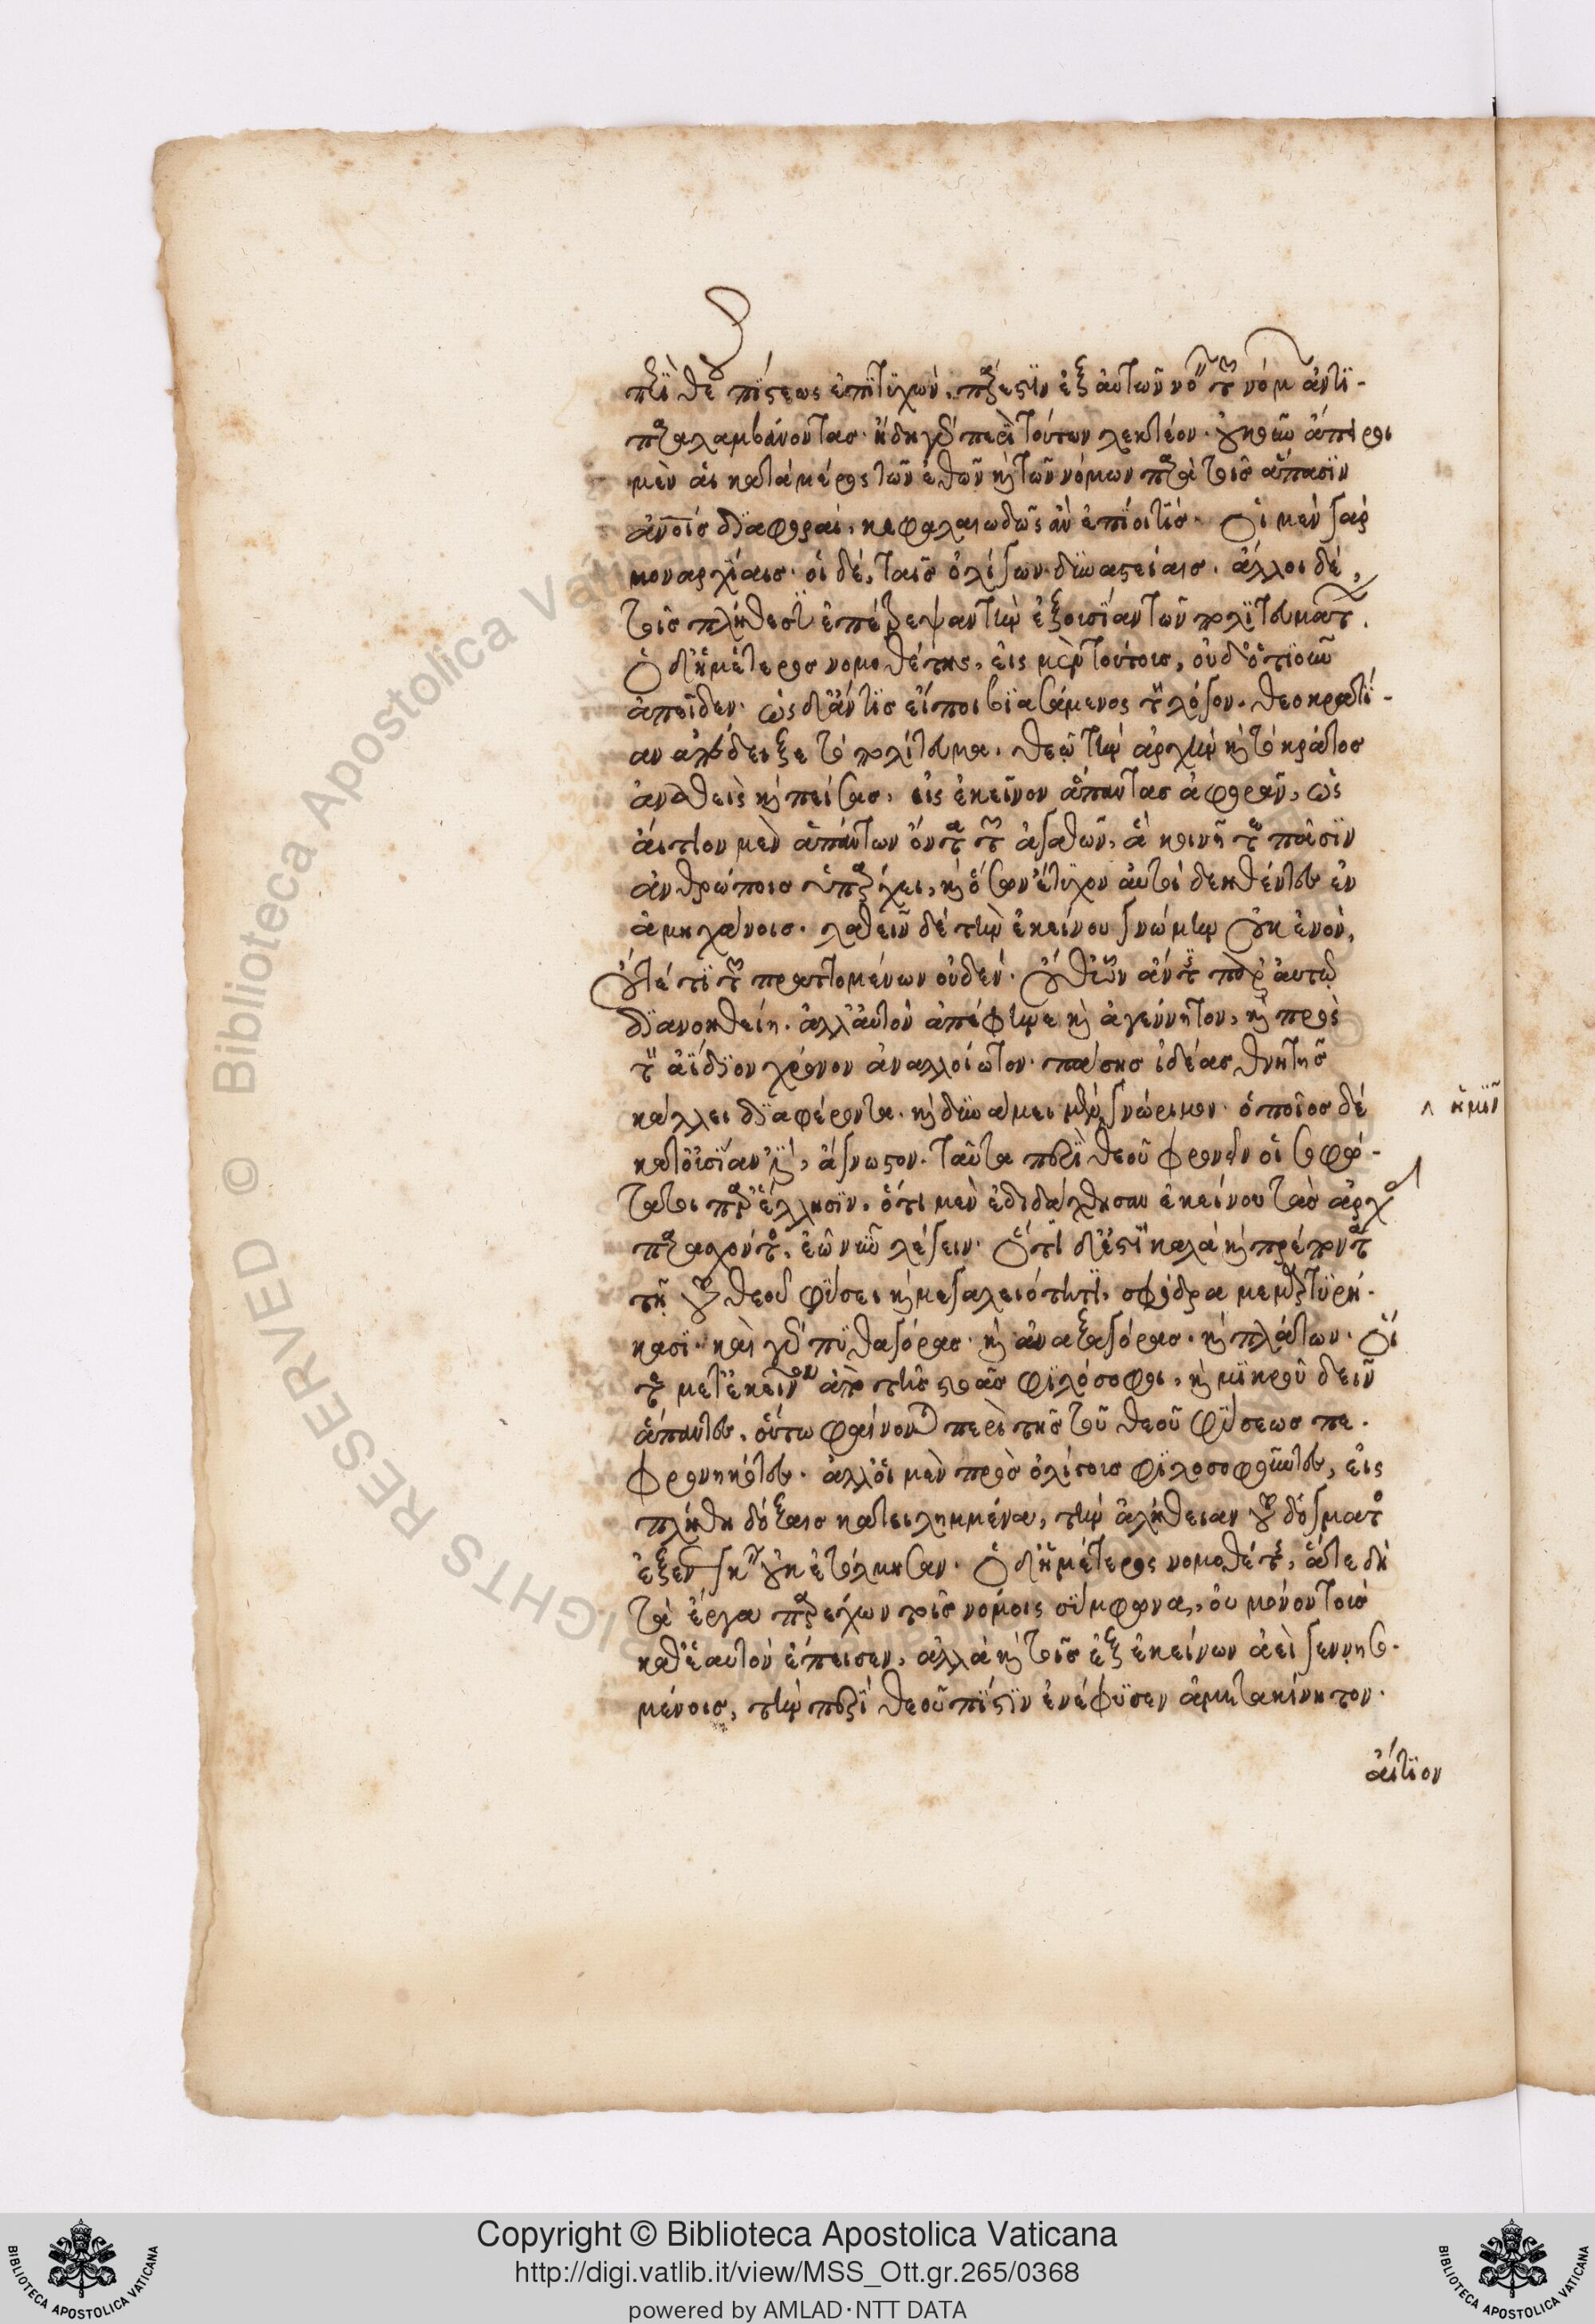 περὶ θεοῦ πίστεως ἐπιτυχών, πάρεστιν ἐξ αὐτῶν νοεῖν τῶν νόμων ἀντι-
παραλαμβάνοντας. ἤδη γὰρ περὶ τούτων λεκτέον. οὐκοῦν ἄπειροι
μὲν αἱ κατὰ μέρος τῶν ἐθῶν καὶ τῶν νόμων παρὰ τοῖς ἅπασιν
ἀνοις διαφοραί, κεφαλαιωδῶς ἂν ἐπίοι τίς. Οἱ μὲν γὰρ
μοναρχίαις. οἱ δὲ, ταῖς ὀλίγων δυναστείαις. ἄλλοι δὲ,
τοῖς πλήθεσιν ἐπέτρεψαν τὴν ἐξουσίαν τῶν πολιτευμάτων.
Ὁ δ' ἡμέτερος νομοθέτης, εἰς μὲν τούτοις, οὐδ' ὁτιοῦν
ἀπεῖδεν. ὡς δ' ἄν τις εἴποι βιασάμενος τὸν λόγον. θεοκρατί-
αν ἀπέδειξε τὸ πολίτευμα. θεῷ τὴν ἀρχὴν καὶ τὸ κράτος
ἀναθεὶς καὶ πείσας, εἰς ἐκεῖνον ἅπαντας ἀφορᾶν, ὡς
αἴτιον μὲν ἁπάντων ὄντα τῶν ἀγαθῶν, ἃ κοινῇ τε πᾶσιν
ἀνθρώποις ὑπάρχει, καὶ ὅσων ἔτυχον αὐτοὶ δεηθέντες ἐν
ἀμηχάνοις. λαθεῖν δὲ τὴν ἐκείνου γνώμην οὐκ ἐνὸν,
οὔτέ τι τῶν πραττομένων οὐδὲν. οὔθ' ὧν ἄν τις παρ' αὐτῷ
διανοηθείη. ἀλλ' αὐτὸν ἀπέφηνε καὶ ἀγέννητον, καὶ πρὸς
τὸν ἀΐδιον χρόνον ἀναλλοίωτον. πάσης ἰδέας θνητῆς
κάλλει διαφέροντα. καὶ δυνάμει μὲν γνώριμον. ὁποῖος δὲ
^ ἡμῖν
κατ' οὐσίαν ἐστὶ, ἄγνωστον. ταῦτα περὶ θεοῦ φρονεῖν οἱ σοφώ-
τατοι παρ' ἕλλησιν. ὅτι μὲν ἐδιδάχθησαν ἐκείνου τὰς ἀρχὰς
παρασχόντος, ἐῶ νῦν λέγειν. Ὅτι δ' ἐστὶ καλὰ καὶ πρέποντα
τῇ τοῦ θεοῦ φύσει καὶ μεγαλειότητι, σφόδρα μεμαρτυρή-
κασι. καὶ γὰρ πυθαγόρας. καὶ ἀναξαγόρας. καὶ πλάτων. Οἱ
τε μετ' ἐκεῖνον ἀπὸ τῆς στοᾶς φιλόσοφοι, καὶ μικροῦ δεῖν
ἅπαντες, οὕτω φαίνονται περὶ τῆς τοῦ θεοῦ φύσεως πε-
φρονηκότες. ἀλλ' οἱ μὲν πρὸς ὀλίγοις φιλοσοφοῦντες, εἰς
πλήθη δόξαις κατειλημμένα, τὴν ἀλήθειαν τοῦ δόγματος
ἐξενεγκεῖν οὐκ ἐτόλμησαν. Ὁ δ' ἡμέτερος νομοθέτης, ἅτε δὴ
τὰ ἔργα παρέχων τοῖς νόμοις σύμφωνα, οὐ μόνον τοῖς
καθ' ἑαυτὸν ἔπεισεν, ἀλλὰ καὶ τοῖς ἐξ ἐκείνων ἀεὶ γεννησο-
μένοις, τὴν περὶ θεοῦ πίστιν ἐνέφυσεν ἀμετακίνητον.
αἴτιον
Copyright © Biblioteca Apostolica Vaticana
http://digi.vatlib.it/view/MSS_Ott.gr.265/0368
powered by AMLAD·NTT DATA